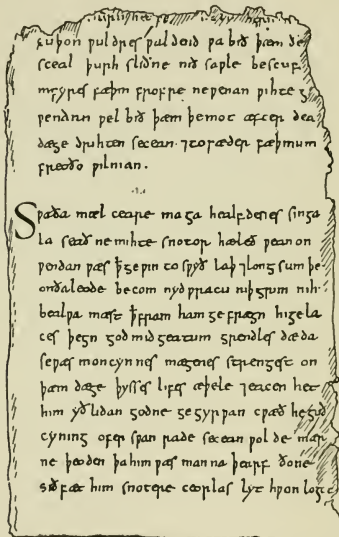 cuþon ƿuldres ƿaldend ƿa bið þæm ðe
sceal þurh sliðne nið saƿle bescuf
fyres fæþm frofre ne ƿenan ƿihte ge
ƿendan ƿel bið þæm þe mot æfter dea
dæge drihten secean ⁊ to fæder fæþmum
freoðo ƿilnian.
Sƿa ða mæl ceare maga healfdenes singa
la seað ne mihte snotor hæleð ƿean on
ƿendan ƿæs ꝥ geƿin to sƿyð laþ ⁊ longsum þe
on ða leode becom nydƿracu niþgrim nih
bealƿa mæst ꝥ fram ham gefrægn higela
ces þegn god mid geatum grendles dæda
se ƿæs moncynnes mægenes strengest on
þæm dæge þysses lifes æþele ⁊ eacen het
him yðlidan godne gegyrƿan cƿæð he guð
cyning ofer sƿan rade secean ƿolde mær
ne þeoden þa him ƿæs manna þearf ðone
siðfæt him snotere ceorlas lyt hƿon